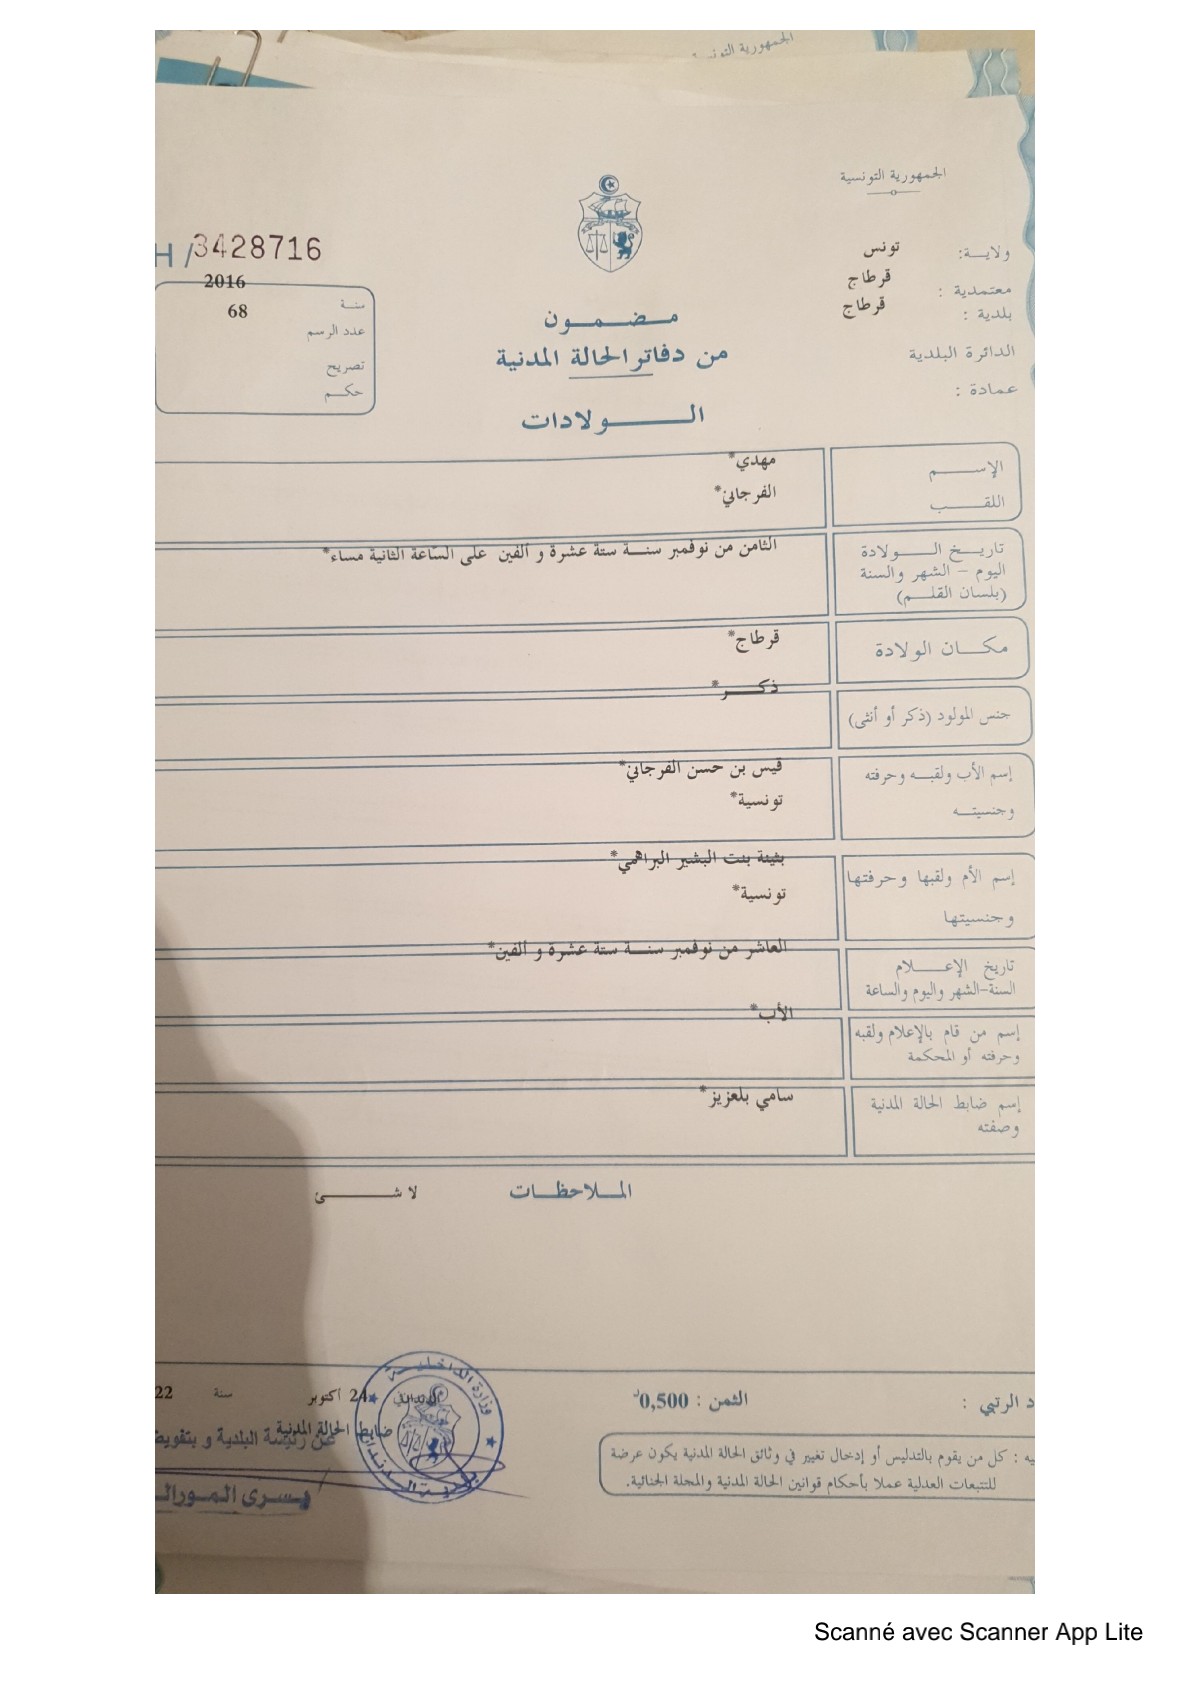 الجمهورية التونسية
الجمهورية التونسية
ولايــة: تونس
معتمدية : قرطاج
بلدية : قرطاج
الدائرة البلدية
عمادة :
H/3428716
سنة 2016
عدد الرسم 68
تصريح
حكم
مضمون
من دفاتر الحالة المدنية
الولادات
الإسم مهدي*
اللقب الفرجاني*
تاريخ الولادة
اليوم – الشهر والسنة
(بلسان القلم)
الثامن من نوفمبر سنة ستة عشرة و ألفين على الساعة الثانية مساء*
مكان الولادة قرطاج*
جنس المولود (ذكر أو أنثى) ذكر*
إسم الأب ولقبه وحرفته قيس بن حسن الفرجاني*
وجنسيته تونسية*
إسم الأم ولقبها وحرفتها بثينة بنت البشير البراهمي*
وجنسيتها تونسية*
تاريخ الإعلام العاشر من نوفمبر سنة ستة عشرة و ألفين*
السنة-الشهر واليوم والساعة
إسم من قام بالإعلام ولقبه الأب*
وحرفته أو المحكمة
إسم ضابط الحالة المدنية سامي بلعزيز*
وصفته
الملاحظات لا شئ
د الرتبي :
الثمن : 0,500د
24 أكتوبر سنة 22
ضابط الحالة المدنية
عن رئيسة البلدية و بتفويض
يسرى المورال
وزارة الداخلية
بلدية الدندان
يه : كل من يقوم بالتدليس أو إدخال تغيير في وثائق الحالة المدنية يكون عرضة
للتتبعات العدلية عملا بأحكام قوانين الحالة المدنية والمجلة الجنائية.
Scanné avec Scanner App Lite